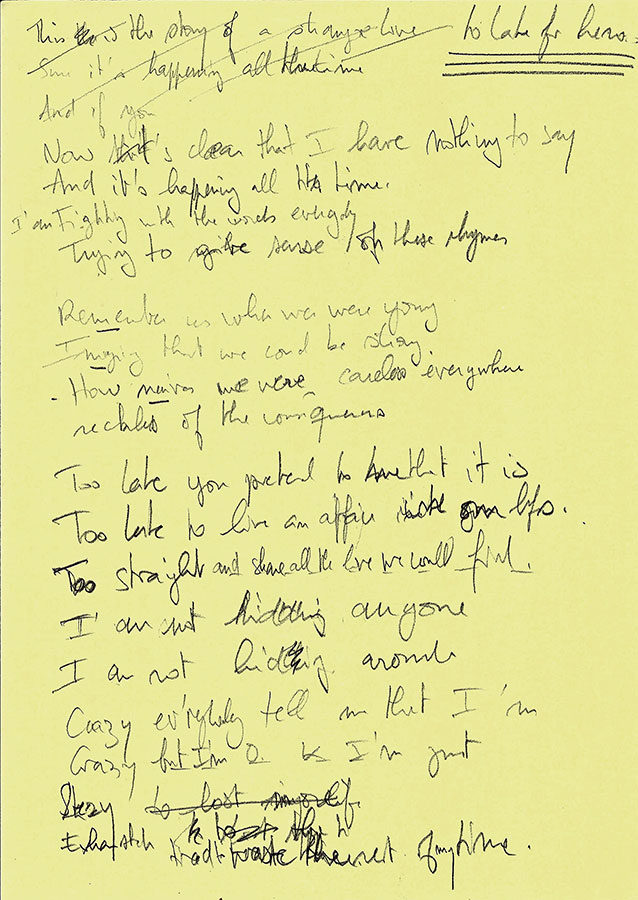 This is the story of a strange love
to late for hero
Sure it's happening all the time
And if you
Now it's clear that I have nothing to say
And it's happening all the time.
I'am Fighting with the words everyday
Trying to give sense of these rhymes
Remember us when we were young
that we could be strong
How we were careless everywhere
reckless of the
Too late you pretend to that it is
Too late to live an affair
Too straight and share all the love we could find.
I'am not anyone
I am not hidding around
Crazy ev'rybody tell me that I'm
Crazy but I'm O.K I'm just
to lost
the rest of my time.